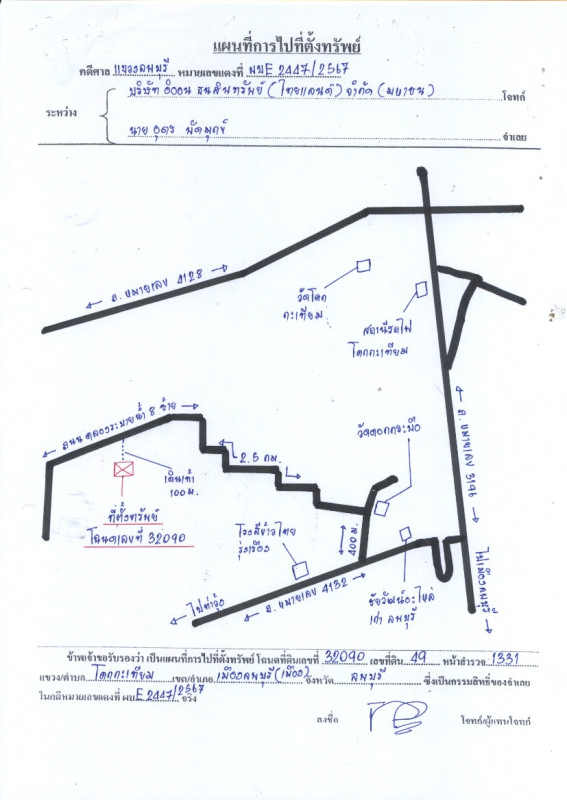 แผนที่การไปที่ตั้งทรัพย์
คดีศาล แขวงลพบุรี หมายเลขแดงที่ ผบE 2447/2567
บริษัท ธนสินทรัพย์ (ไทยแลนด์) จำกัด (มหาชน) โจทก์
ระหว่าง
นาย อุดร จำเลย
ถ. หมายเลข 4128
วัดโคก
กะเทียม
สถานีรถไฟ
โคกกะเทียม
ถนนคลองระบายน้ำ 8 ซ้าย
2.5 กม.
วัดดอกกระบือ
ถ. หมายเลข 3196
เดินเท้า
100 ม.
ที่ตั้งทรัพย์
โฉนดเลขที่ 32090
โรงสีข้าวไทย
รุ่งเรือง
400 ม.
ไปท่าวุ้ง
ถ. หมายเลข 4132
ชัยวัฒน์อะไหล่
เก่า ลพบุรี
ไปเมืองลพบุรี
ข้าพเจ้าขอรับรองว่า เป็นแผนที่การไปที่ตั้งทรัพย์ โฉนดที่ดินเลขที่ 32090 เลขที่ดิน 49 หน้าสำรวจ 1331
แขวง/ตำบล โคกกะเทียม เขต/อำเภอ เมืองลพบุรี (เมือง) จังหวัด ลพบุรี ซึ่งเป็นกรรมสิทธิ์ของจำเลย
ในคดีหมายเลขแดงที่ ผบE 2447/2567 จริง
ลงชื่อ โจทก์/ผู้แทนโจทก์